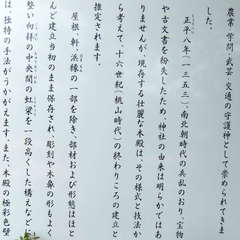 農業 学問 武芸 交通の守護神として崇められてきま
した。
正平八年(一三五三)、南北朝時代の兵乱のおり、宝物
や古文書を紛失したため、神社の由来は明らかではあ
りませんが、現存する壮麗な本殿は、その様式と技法か
ら考えて、十六世紀(桃山時代)の終わりころの建立と
推定されます。
屋根・軒・浜縁の一部を除き、部材および形態はほと
んど建立当初のまま保存され、彫刻や木鼻の形もよく
整い向拝の中央間の虹梁を一段高くした構えなど
は、独特の手法がうかがえます。また、本殿の極彩色壁